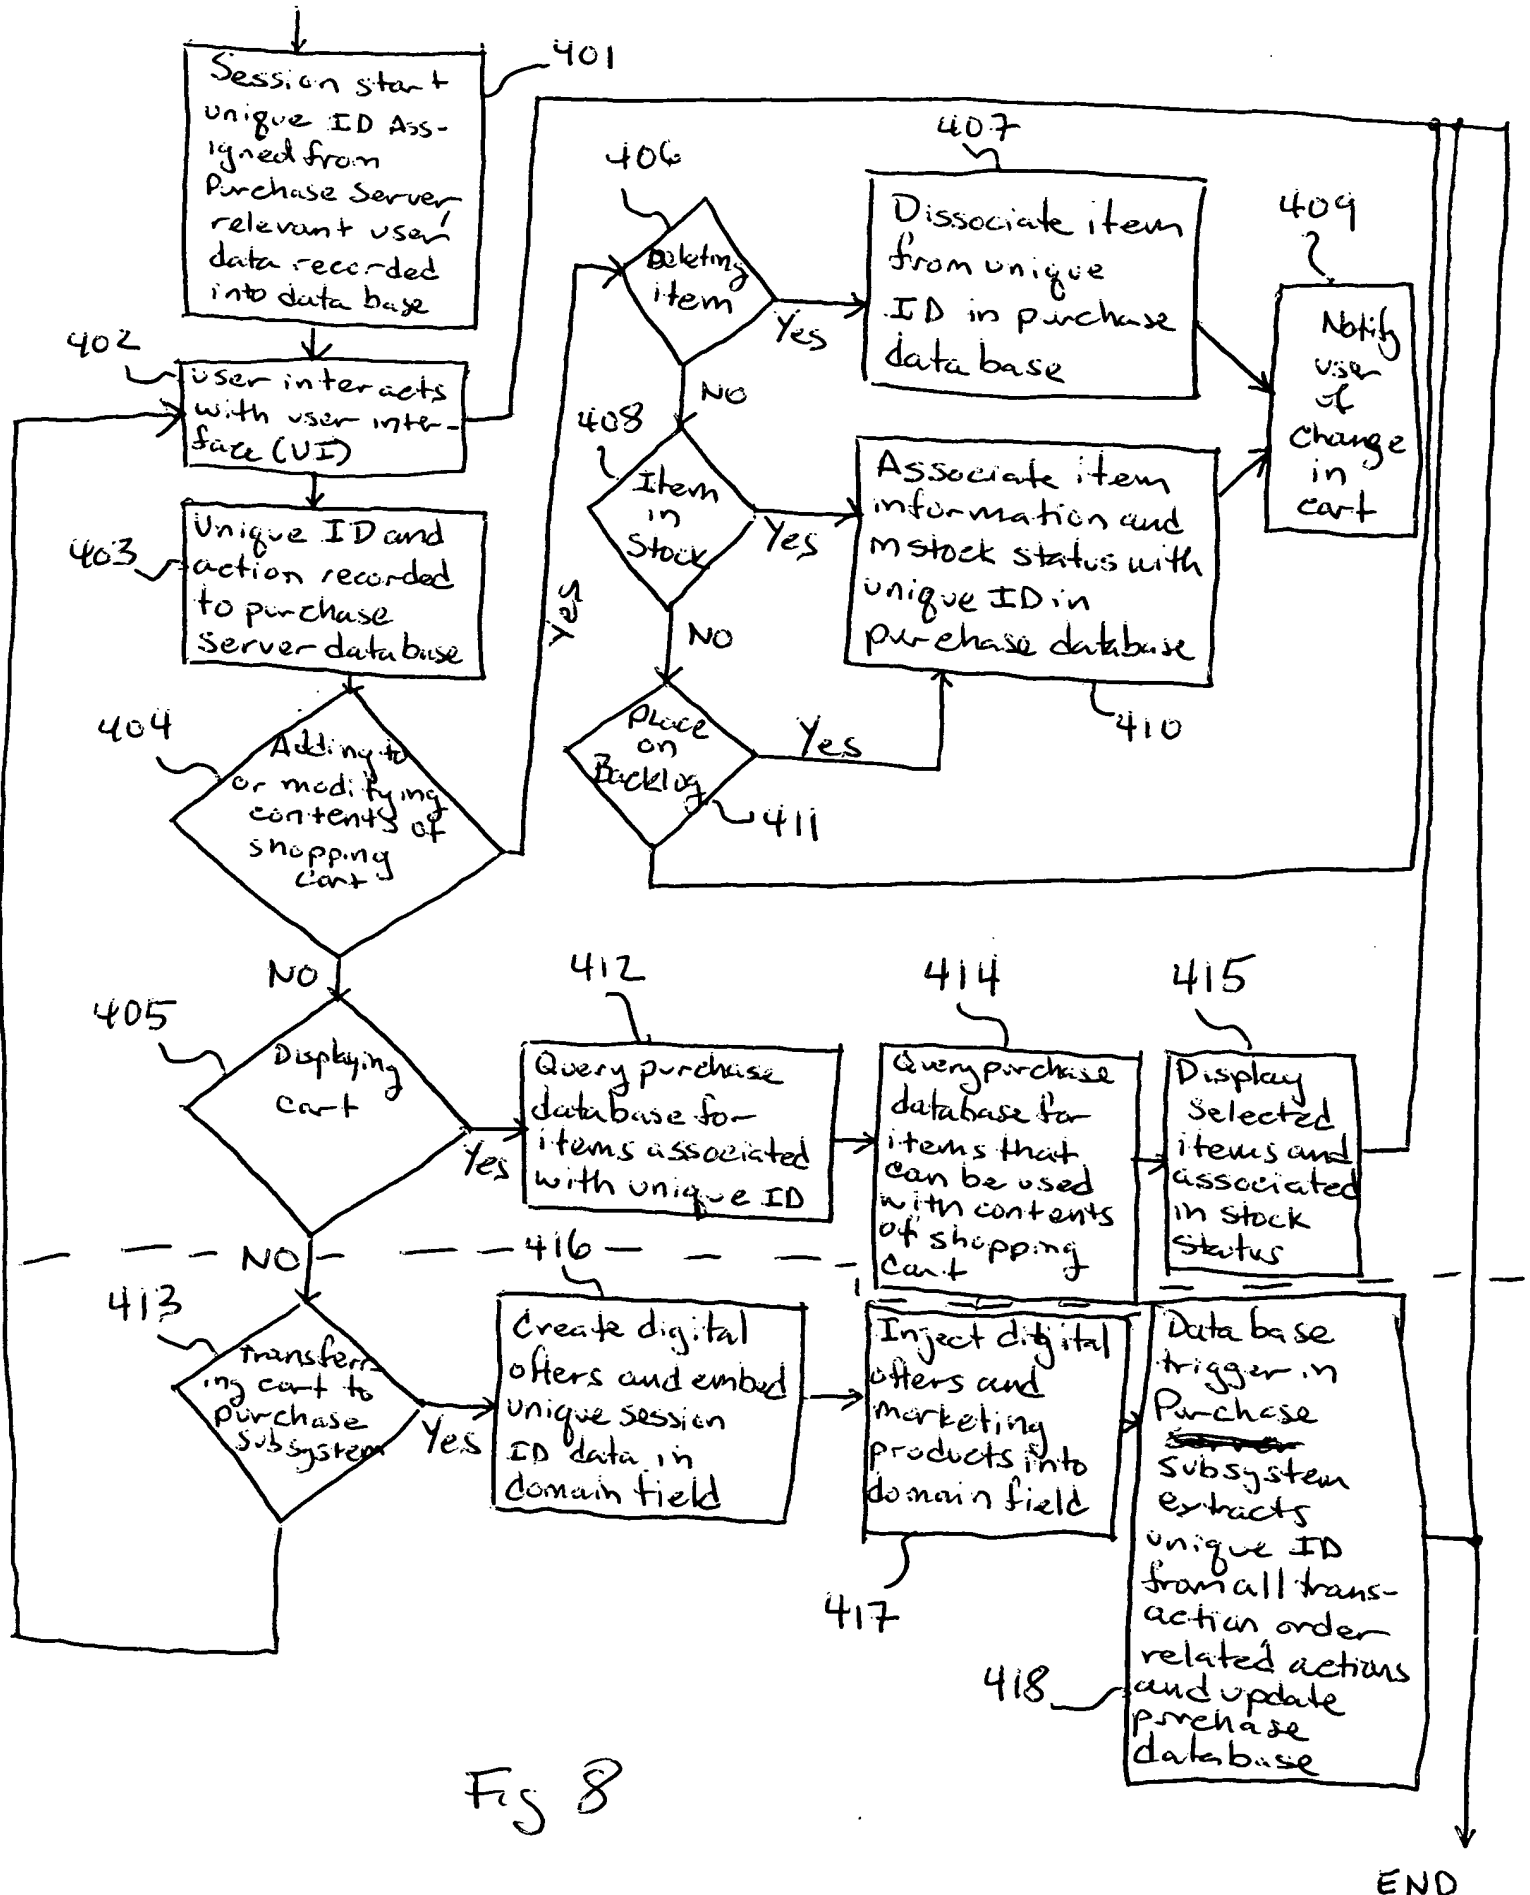 401
Session start
unique ID Ass-
igned from
Purchase Server,
relevant user
data recorded
into data base
402
user interacts
with user inter-
face (UI)
403
Unique ID and
action recorded
to purchase
Server database
404
Adding to
or modifying
contents of
shopping
cart
Yes
NO
406
Deleting
item
Yes
NO
407
Dissociate item
from unique
ID in purchase
data base
409
Notify
user
of
change
in
cart
408
Item
in
Stock
Yes
NO
Associate item
information and
in stock status with
unique ID in
purchase database
410
Place
on
Backlog
Yes
411
405
Displaying
cart
Yes
NO
412
Query purchase
database for
items associated
with unique ID
414
Query purchase
database for
items that
can be used
with contents
of shopping
cart
415
Display
selected
items and
associated
in stock
status
413
Transferr-
ing cart to
purchase
subsystem
Yes
416
Create digital
offers and embed
unique session
ID data in
domain field
Inject digital
offers and
marketing
products into
domain field
417
Data base
trigger in
Purchase
server
subsystem
extracts
unique ID
from all trans-
action order
related actions
and update
purchase
database
418
Fig 8
END